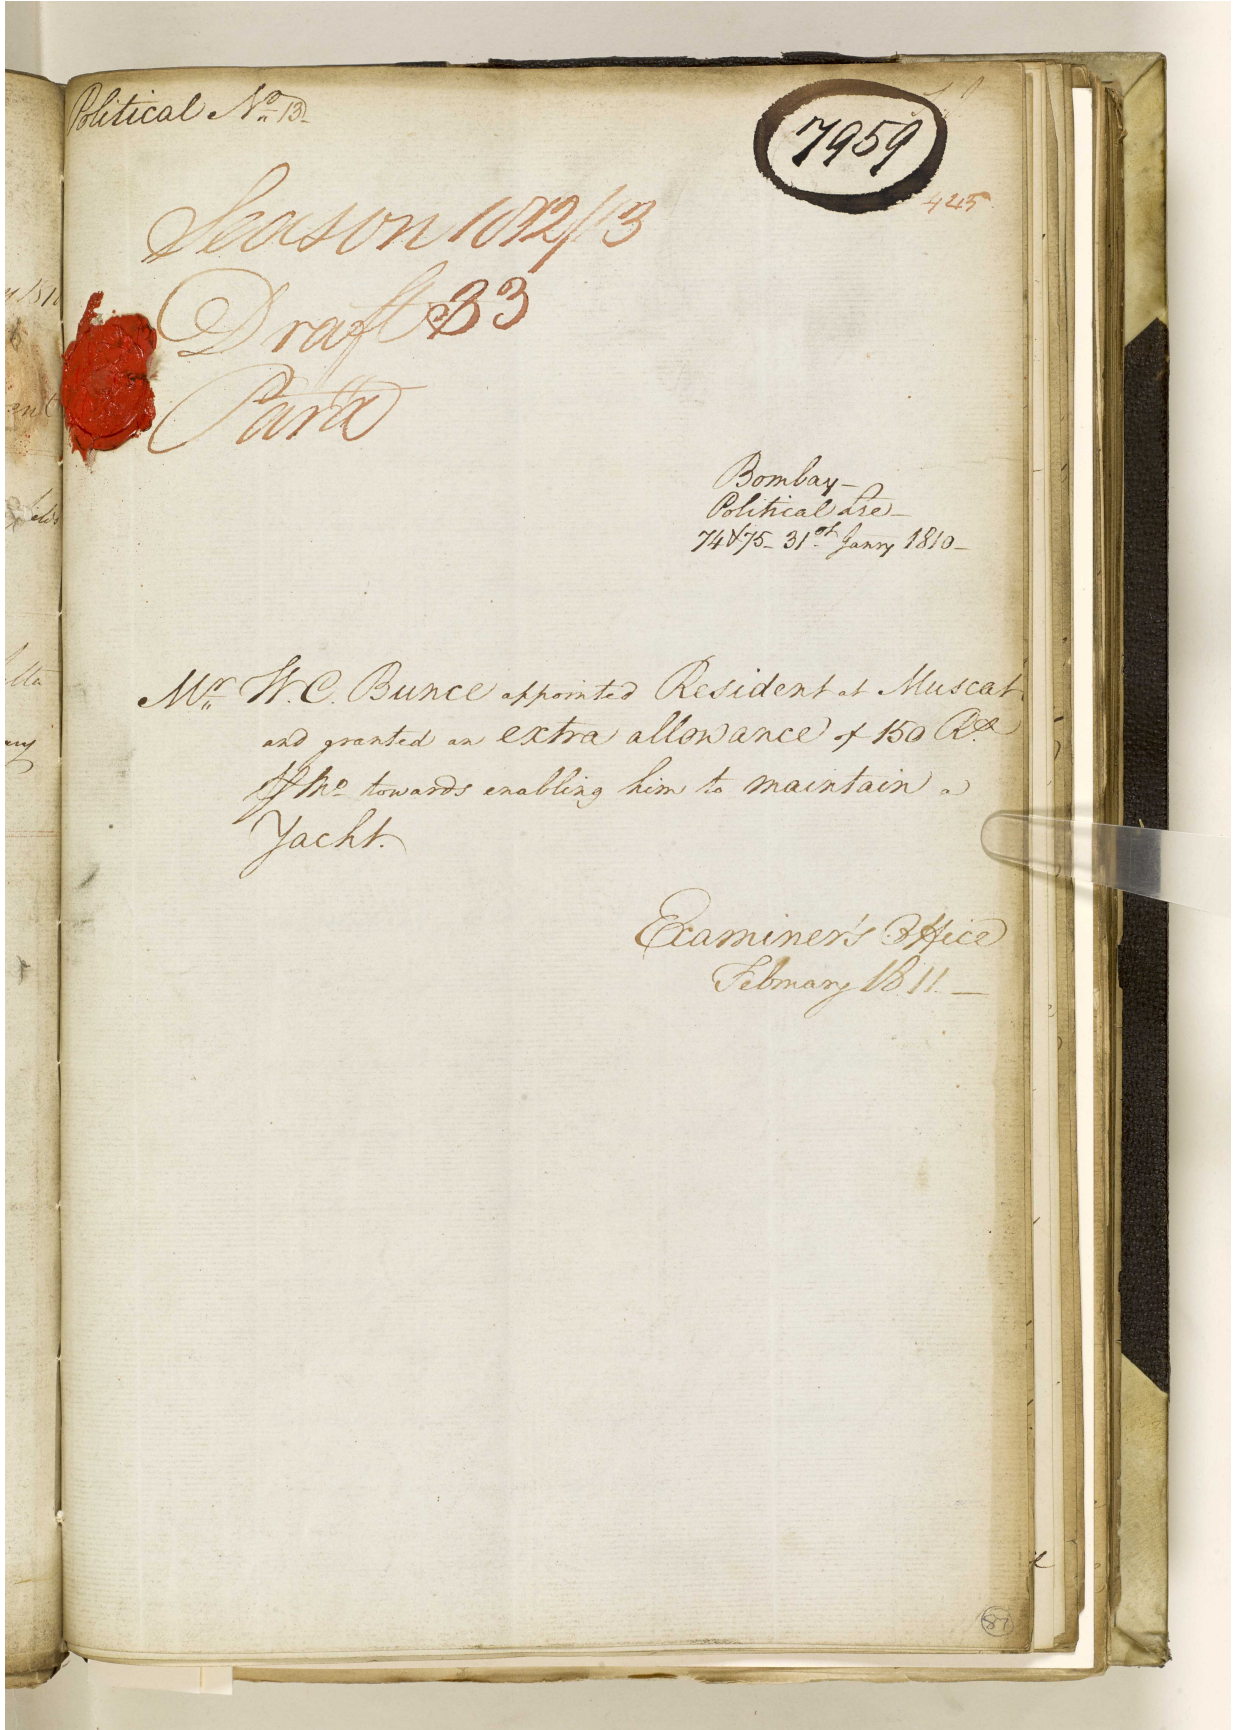 Political No. 13
7959
425
Season 1812/13
Draft 33
Para
Bombay
Political Lre
74 & 75 - 31st Janry 1810
Mr. W. C. Bunce appointed Resident at Muscat
and granted an extra allowance of 150 Rs.
P Mo towards enabling him to maintain a
Yacht.
Examiner's Office
February 1811
87